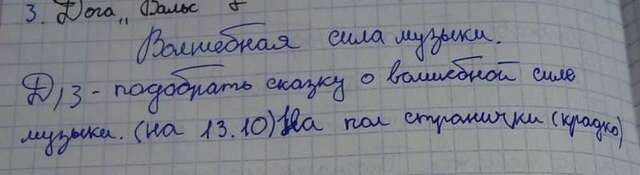 3. Дога „ Вальс
Волшебная сила музыки.
Д/З - подобрать сказку о волшебной силе
музыки. (на 13.10) На пол странички (крадко)